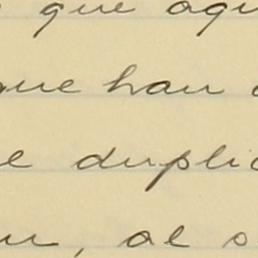 que aqu
que han
e duplic
, al